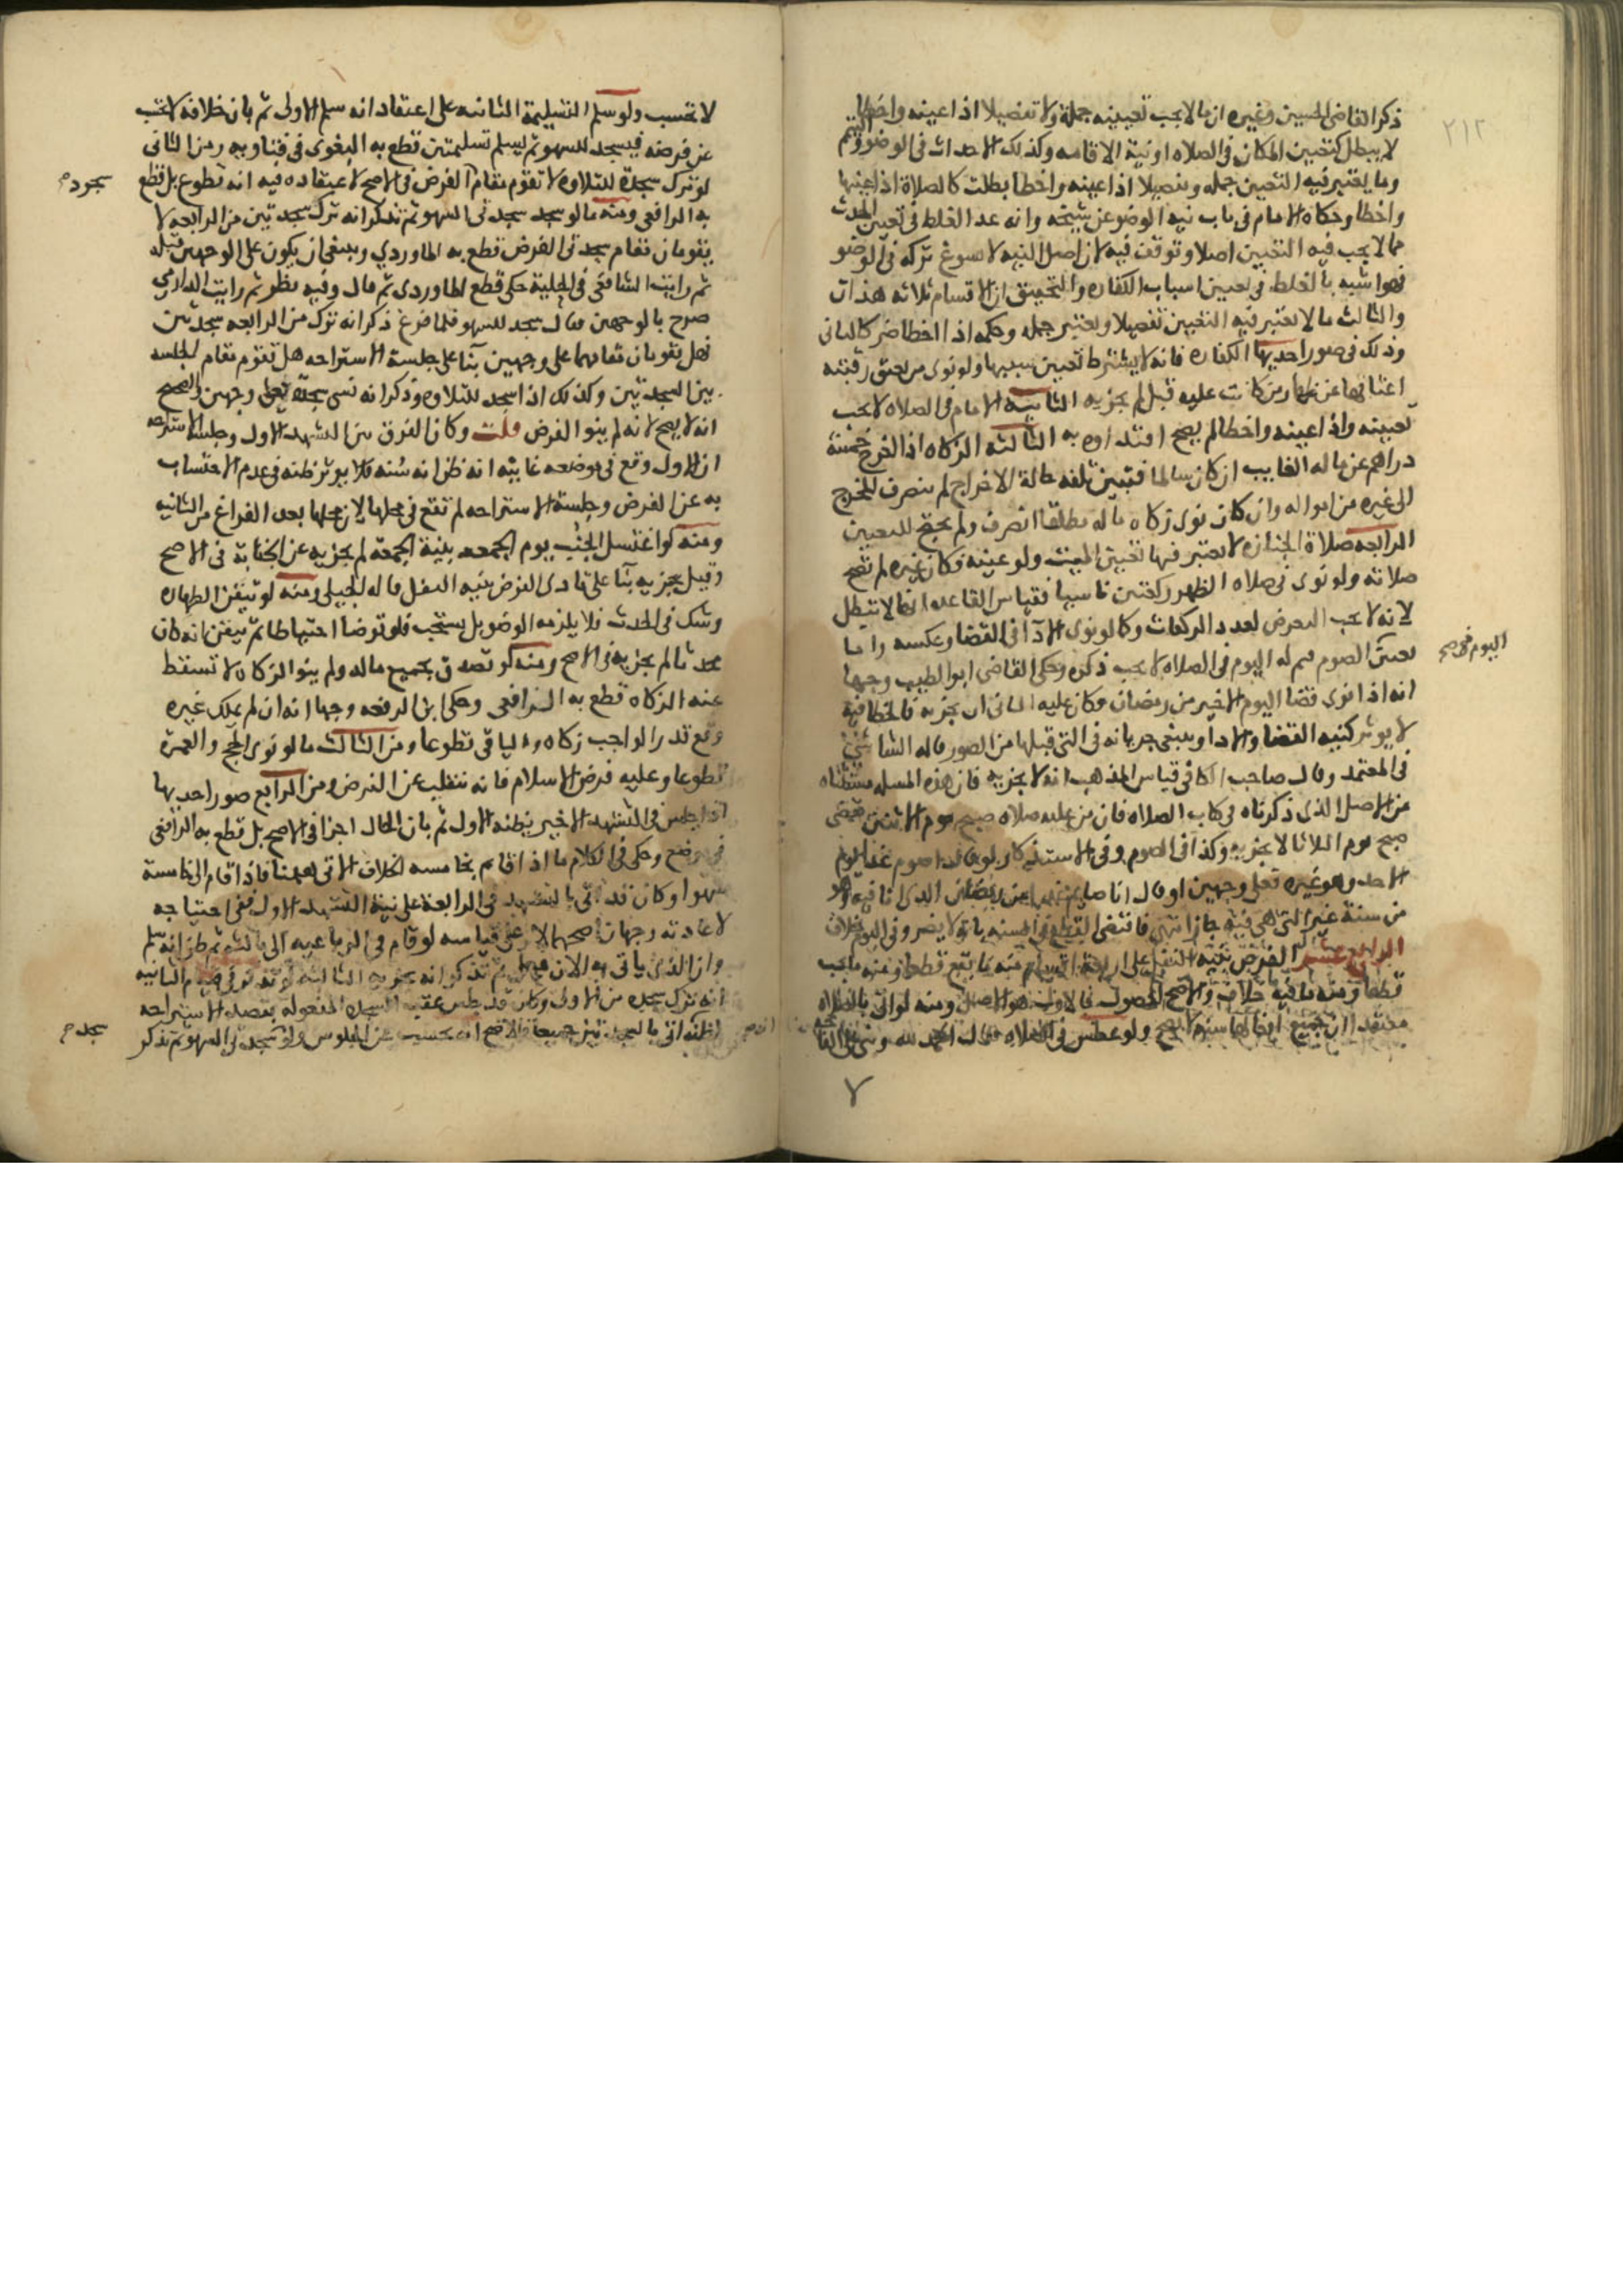 ٢١٢
ذكر القاضى الحسين وغيره ان ما لا يجب تعيينه جملة ولا تفصيلا اذا عينه واخطا
لا يبطل كتعيين المكان فى الصلاه او نية الاقامه وكذلك الاحداث فى الوضو والتيمم
وما يعتبر فيه التعيين جمله وتفصيلا اذا عينه واخطا بطلت كالصلاة اذا عينها
واخطا وحكاه الامام فى باب نية الوضو عن شيخه وانه عد الغلط فى تعيين الحدث
مما لا يجب فيه التعيين اصلا وتوقف فيه لان اصل النيه لا يسوغ تركه فى الوضو
فهو اشبه بالغلط فى تعيين اسباب الكفاره والتحقيق ان الاقسام ثلاثه هذان
والثالث ما لا يعتبر فيه التعيين تفصيلا ويعتبر جمله وحكمه اذا اخطا ضر كالثانى
وذلك فى صور احديها الكفاره فانه لا يشترط تعيين سببها ولو نوى من يعتق رقبته
اعتاقها عن ظهار من كانت عليه قبل لم يجزيه الثانيه الامام فى الصلاه لا يجب
تعيينه واذا عينه واخطا لم يصح اقتداوه به الثالثه الزكاه اذا اخرج خمسة
دراهم عن ماله الغايب ان كان سالما فتبين تلفه حالة الاخراج لم ينصرف المخرج
الى غيره من امواله وان كان نوى زكاه ماله مطلقا انصرف ولم يحتج للتعيين
الرابعه صلاة الجنازه لا يعتبر فيها تعيين الميت ولو عينه وكان غيره لم تصح
صلاته ولو نوى فى صلاه الظهر ركعتين ناسيا فقياس القاعده انها لا تبطل
لانه لا يجب التعرض لعدد الركعات وكما لو نوى الادآ فى القضا وعكسه واما
تعين الصوم فى له اليوم فى الصلاه لا يجب ذكره وحكى القاضى ابو الطيب وجها
اليوم فى صح
انه اذا نوى قضا اليوم الاخير من رمضان وكان عليه الثانى ان يجزيه فالخطا فيه
لا يوثر كنيه القضا والادا وينبغى جريانه فى التى قبلها من الصور قاله الشاشى
فى المعتمد وقال صاحب الكافى قياس المذهب انه لا يجزيه فان هذه المساله مستثناه
عن الاصل الذى ذكرناه فى كتاب الصلاه فان من عليه صلاه صبح يوم الاثنين فقضى
صبح يوم الثلاثا لا يجزيه وكذا فى الصوم وفى الاستذكار لو قال اصوم غدا يوم
الاحد وهو غيره فعلى وجهين او قال انا صايم غدا عن رمضان الذى انا فيه وهو
من سنة غير التى هى فيه جاز انتهى فاقتضى القطع فى السنه بانه لا يضر وفى اليوم خلاف
الرابع عشر الفرض بنية النفل على اربعة اقسام منه ما يقع قطعا ومنه ما يجب
قطعا ومنه ما فيه خلاف والاصح الحصول فالاول هو الاصل ومنه لو اتى بالصلاه
معتقدا ان جميع افعالها سنه لا يصح ولو عطس فى الصلاه فقال الحمد لله وبنى على الفاتحه
٧
لا تحسب ولو سلم التسليمة الثانيه على اعتقاد انه سلم الاولى ثم بان خلافه لا تحسب
عن فرضه فيسجد للسهو ثم يسلم تسليمتين قطع به البغوى فى فتاويه ومن الثانى
لو ترك سجدة للتلاوه لا تقوم مقام الفرض فى الاصح لاعتقاده فيه انه تطوع بل قطع
سجود م
به الرافعى ومنه ما لو سجد سجدتى السهو ثم تذكر انه ترك سجدتين من الرابعه لا
يقومان مقام سجدتى الفرض قطع به الماوردي وينبغى ان يكون على الوجهين قبله
ثم رايت الشاشى فى الحلية حكى قطع الماوردى ثم قال وفيه نظر ثم رايت الدارمي
صرح بالوجهين فقال سجد للسهو فلما فرغ ذكر انه ترك من الرابعه سجدتين
فهل يقومان مقامهما على وجهين بنآ على جلسة الاستراحه هل تقوم مقام الجلسه
بين السجدتين وكذلك اذا سجد للتلاوه وذكر انه نسى سجدة فعلى وجهين والصحيح
انه لا يصح لانه لم ينو الفرض قلت وكان الفرق بين التشهد الاول وجلسة الاستراحه
ان الاول وقع فى موضعه غايته انه ظن انه سُنه فلا يوثر ظنه فى عدم الاحتساب
به عن الفرض وجلسة الاستراحه لم تقع فى محلها لان محلها بعد الفراغ من الثانيه
ومنه لو اغتسل الجنب يوم الجمعه بنية الجمعة لم يجزيه عن الجنابة فى الاصح
وقيل يجزيه بنآ على تادى الفرض بنيه النفل قاله الجيلى ومنه لو تيقن الطهاره
وشك فى الحدث فلا يلزمه الوضو بل يستحب فلو توضا احتياطا ثم تيقن انه كان
محدثا لم يجزيه فى الاصح ومنه لو تصدق بجميع ماله ولم ينو الزكاه لا تسقط
عنه الزكاه قطع به الرافعى وحكى ابن الرفعه وجها انه ان لم يملك غيره
وقع قدر الواجب زكاه والباقى تطوعا ومن الثالث ما لو نوى الحج والعمرة
تطوعا وعليه فرض الاسلام فانه ينقلب عن الفرض ومن الرابع صور احديها
اذا جلس فى التشهد الاخير بظنه الاول ثم بان الحال اجزا فى الاصح بل قطع به الرافعى
فى موضع وحكى فى الكلام ما اذا قام بخامسه الخلاف الاتى ههنا فاذا قام الى خامسة
سهوا وكان قد اتى بالتشهد فى الرابعة على نية التشهد الاول ففى احتياجه
لاعادته وجهان اصحهما لا وعلى قياسه لو قام فى الرباعيه الى ثالثه ثم ظن انه سلم
وان الذى ياتى به الان ثم تذكر انه
انه ترك سجده من الاولى وكان قد جلس عقب السجده المفعوله بقصد الاستراحه
لظنه اتى بالسجدتين جميعا فالاصح انه يحسب عن الجلوس ولو سجد فى السهو ثم تذكر
سجد م